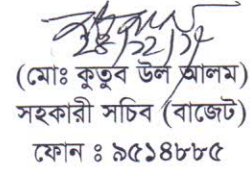 (মোঃ কুতুব উল আলম)
সহকারী সচিব (বাজেট)
ফোন ঃ ৯৫১৪৮৮৫